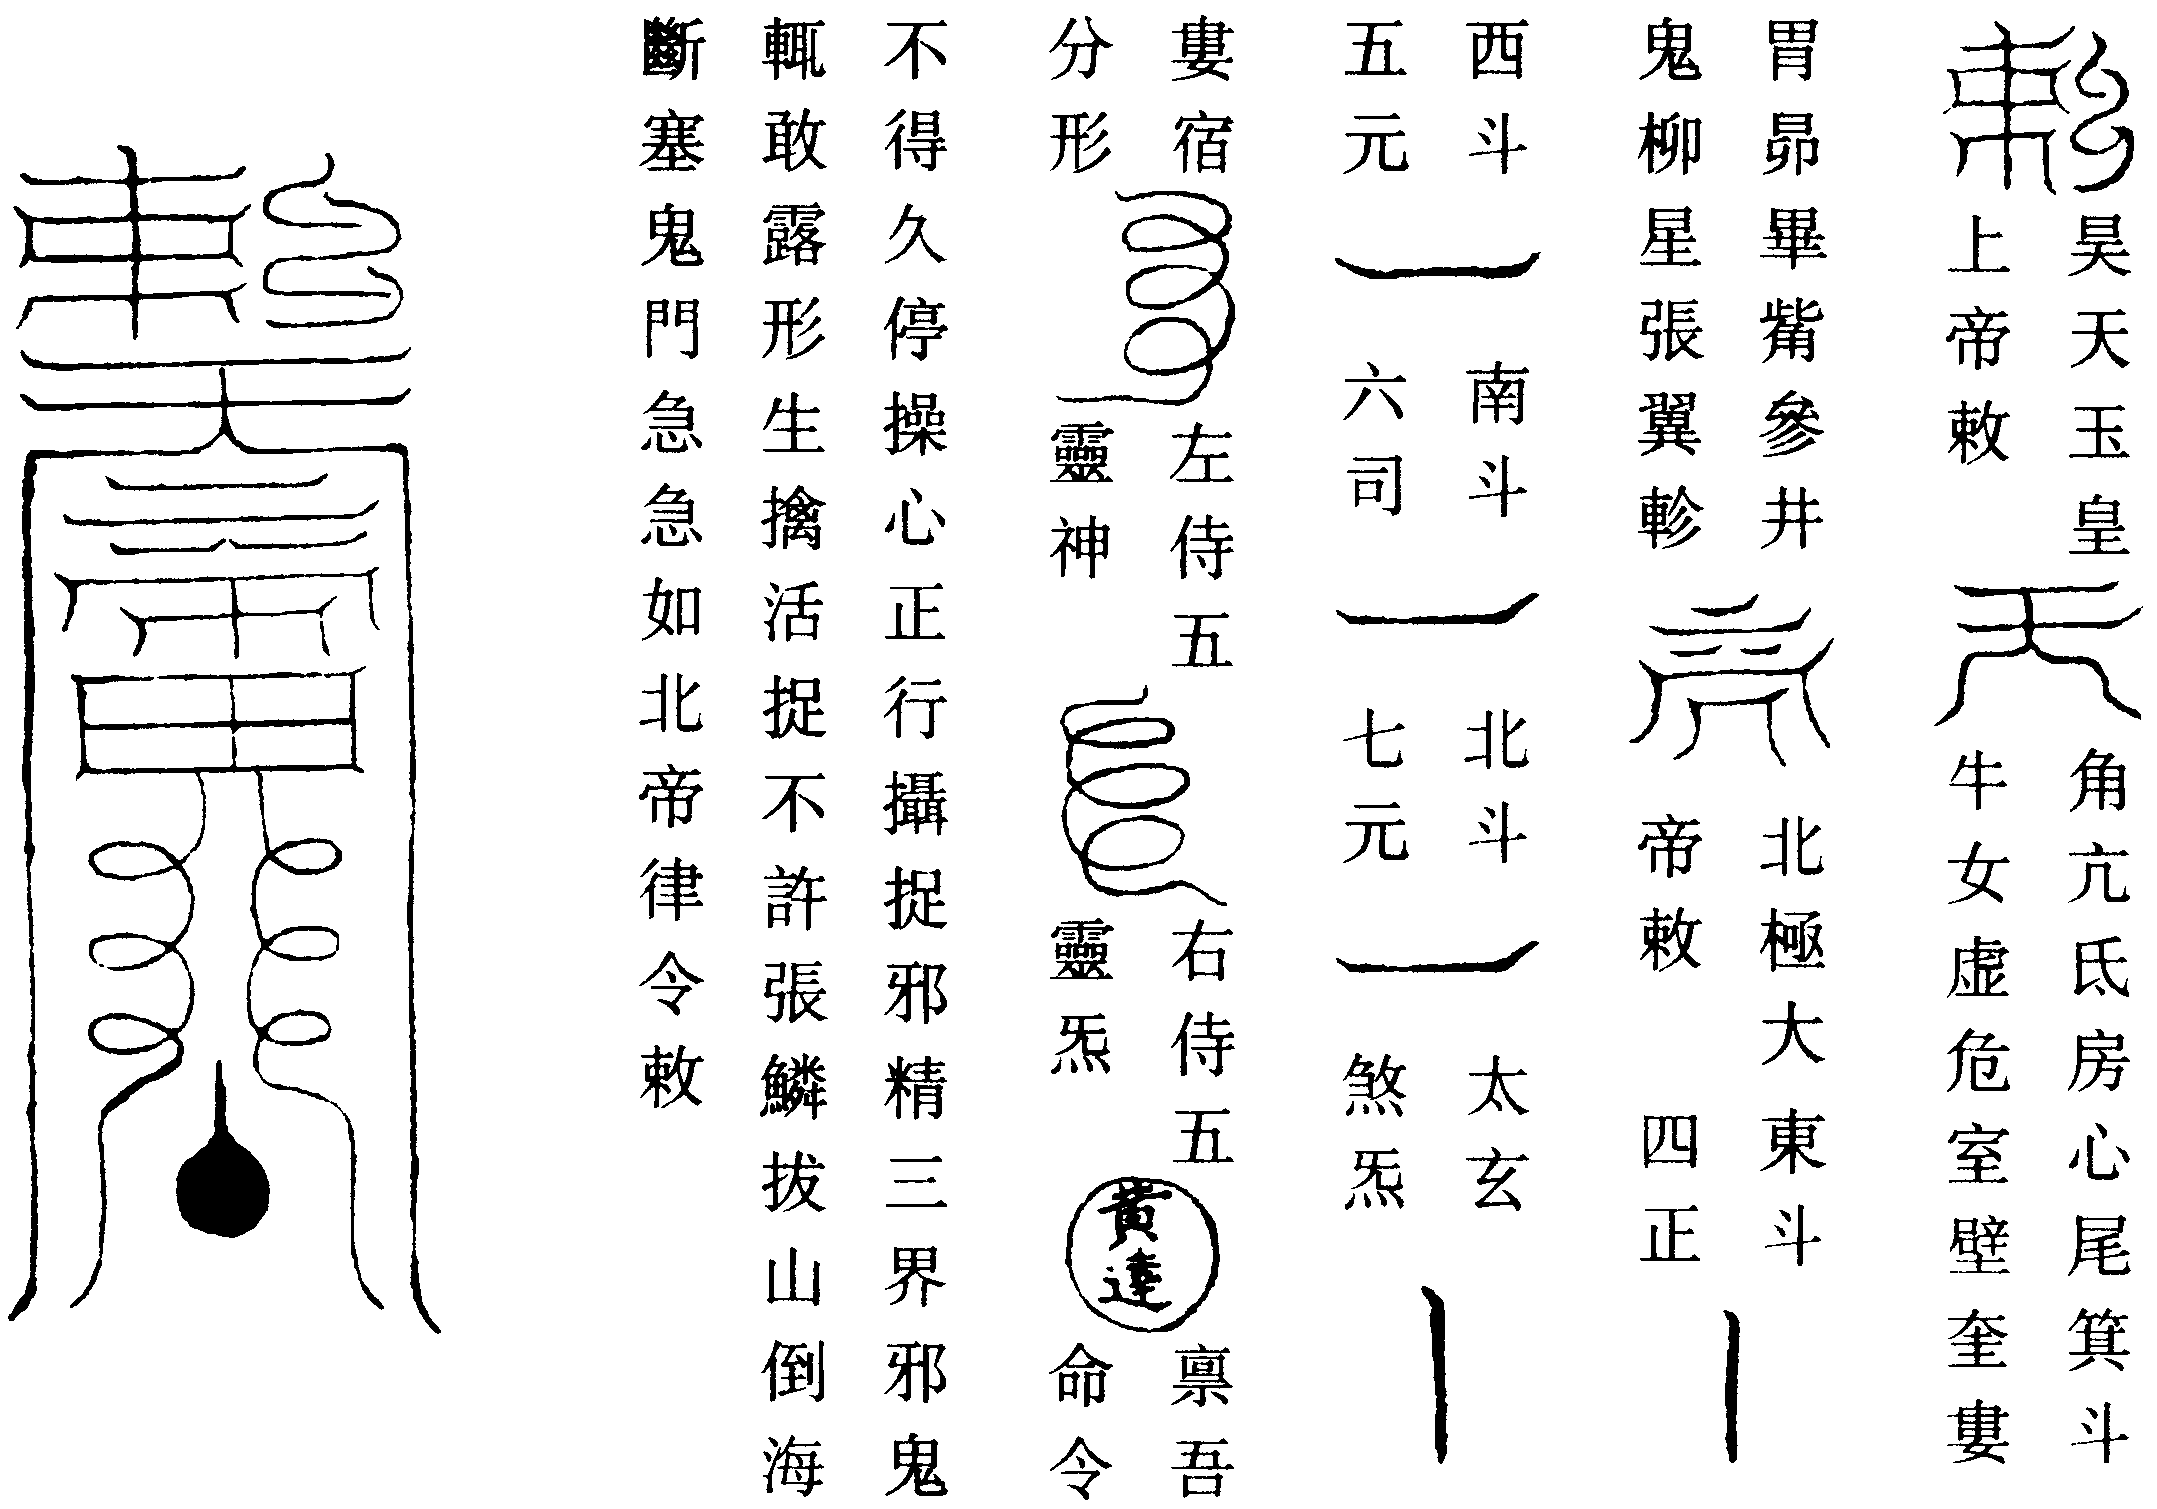 昊天玉皇
上帝敕
角亢氐房心尾箕斗
牛女虚危室壁奎婁
胃昴畢觜參井
鬼柳星張翼軫
北極大
帝敕
東斗
四正
西斗
五元
南斗
六司
北斗
七元
太玄
煞炁
婁宿
分形
左侍五
靈神
右侍五
靈炁
黃達
禀吾
命令
不得久停操心正行攝捉邪精三界邪鬼
輒敢露形生擒活捉不許張鱗拔山倒海
斷塞鬼門急急如北帝律令敕